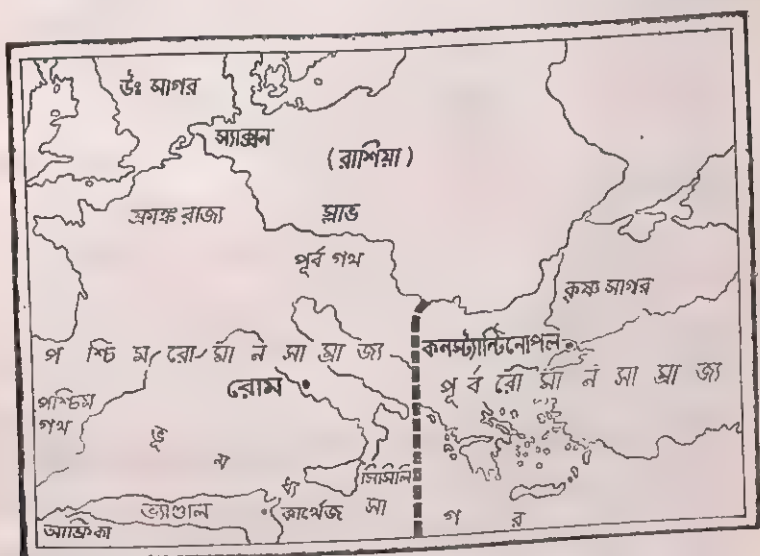 উঃ সাগর
স্যাক্সন
(রাশিয়া)
ফ্রাঙ্ক রাজ্য
স্লাভ
পূর্ব গথ
কৃষ্ণ সাগর
পশ্চিম রোমান সাম্রাজ্য
কনস্ট্যান্টিনোপল
রোম
পূর্ব রোমান সাম্রাজ্য
পশ্চিম
গথ
ভূমধ্য সাগর
সিসিলি
ভ্যাণ্ডাল
কার্থেজ
আফ্রিকা